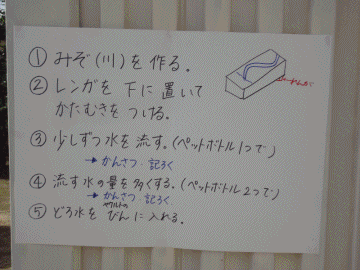 ① みぞ(川)を作る.
② レンガを下に置いて
かたむきをつける.
れんが
③ 少しずつ水を流す。(ペットボトル1つで)
→かんさつ 記ろく
④ 流す水の量を多くする.(ペットボトル2つで)
→かんさつ 記ろく
ヤクルトの
⑤ どろ水をびんに入れる.